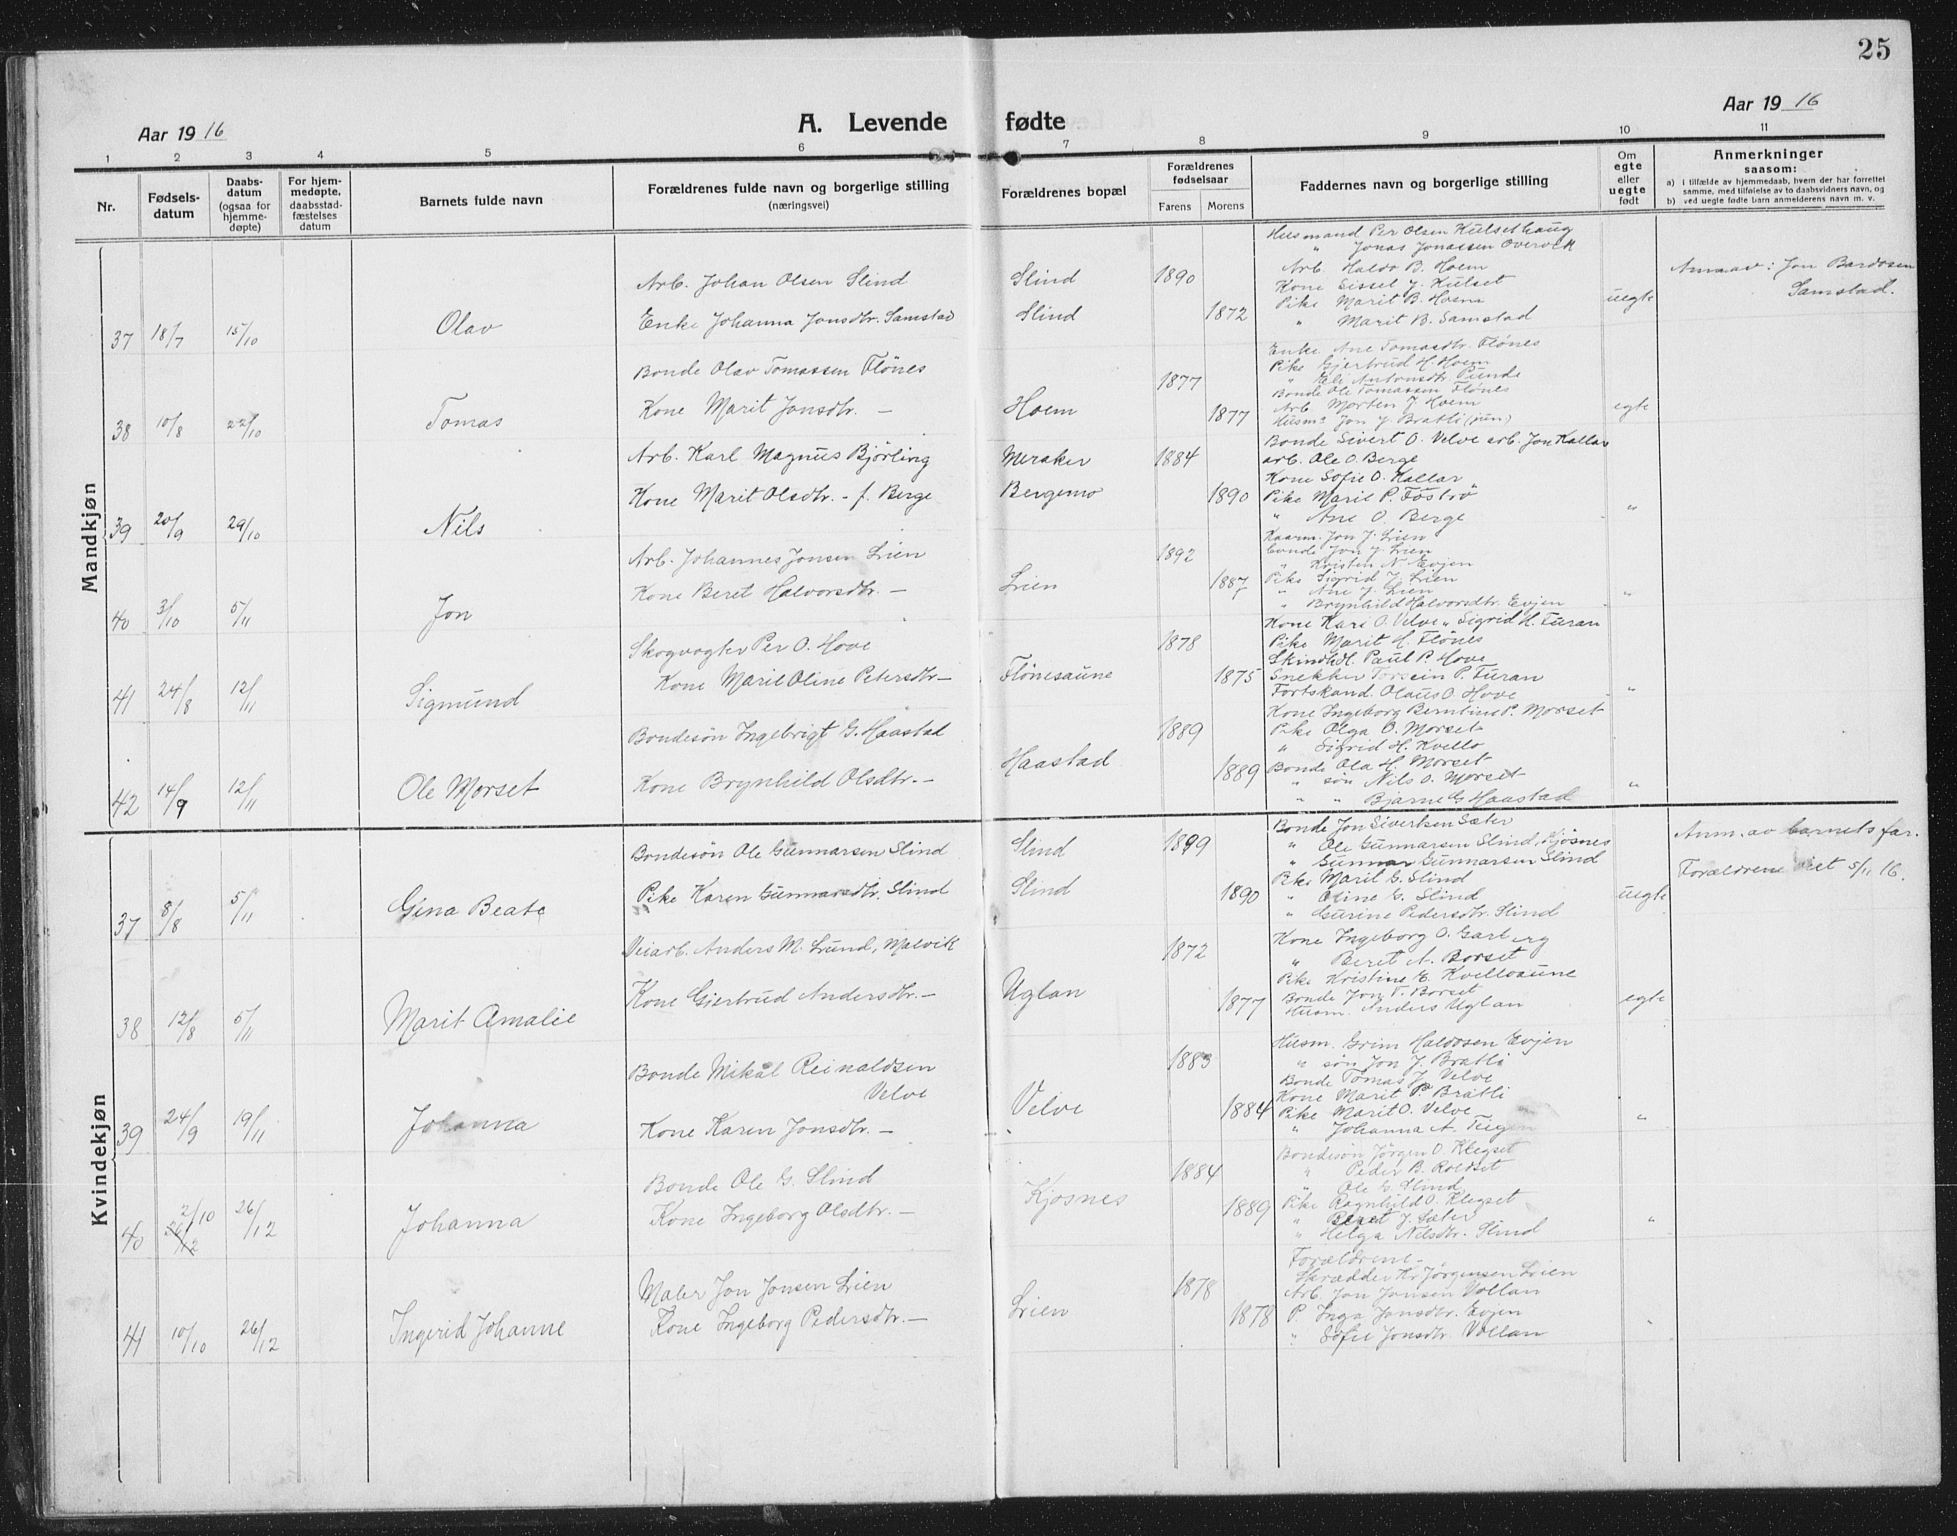 25
Aar 19 16
A. Levende fødte
Aar 19 16
1 2 3 4 5 6 7 8 9 10 11
Nr.
Fødselsdatum
Daabsdatum (ogsaa for hjemmedøpte)
For hjemmedøpte, daabsstadfæstelses datum
Barnets fulde navn
Forældrenes fulde navn og borgerlige stilling (næringsvei)
Forældrenes bopæl
Forældrenes fødselsaar
Farens Morens
Faddernes navn og borgerlige stilling
Om egte eller uegte født
Anmerkninger saasom:
a) i tilfælde av hjemmedaab, hvem der har forrettet samme, med tilføielse av to daabsvidners navn, og
b) ved uegte fødte barn anmelderens navn m. v.
Mandkjøn
37 18/7 15/10 Olav
Arb. Johan Olsen Slind
Enke Johanna Jonsdtr. Samstad
Slind 1890
Slind 1872
Husmand Per Olsen Kulsethaug
" Jonas Jonassen Overvik
Arb. Haldo B. Hoem
Kone Sissel J. Kulset
Pike Marit B. Hoem
" Marit B. Samstad
uegte
Anm av: Jon Bardosen
Samstad.
38 10/8 22/10 Tomas
Bonde Olav Tomassen Flönes
Kone Marit Jonsdtr. —
Hoem 1877 1877
Enke Ane Tomasdtr. Flönes
Pike Gjertrud H. Hoem
" Antonsdtr.
Bonde Ole Tomassen Flönes
Arb. Morten J. Hoem
Husm. Jon J. Bratli (jun)
egte
39 20/9 29/10 Nils
Arb. Karl Magnus Bjørling
Kone Marit Olsdtr. - f. Berge
Meraker 1884
Bergemo 1890
Bonde Sivert O. Velve arb. Jon Kallar
arb. Ole O. Berge
Kone Sofie O. Kallar
Pike Marit P.
" Ane O. Berge
"
40 3/10 5/11 Jon
Arb. Johannes Jonsen Lien
Kone Beret Halvorsdtr. —
Lien 1892 1887
Jon J. Lien
bonde Jon J. Lien
" Kristen N. Evjen
Pike Sigrid J. Lien
" Ane J. Lien
" Brynhild Halvorsdtr. Evjen
"
41 24/8 12/11 Sigmund
Skogvogter Per O. Hove
Kone Marit Oline Petersdtr —
Flönesaune 1878 1875
Kone Kari O. Velve " Sigrid H. Furan
Pike Marit H. Flönes
Paul P. Hove
Snekker Torstein P. Furan
Forstkand. Olaus O. Hove
"
42 14/9 12/11 Ole Morset
Bondesøn Ingebrigt G. Haastad
Kone Brynhild Olsdtr. —
Haastad 1889 1889
Kone Ingeborg Berntine P. Morset
Pike Olga O. Morset
" Sigrid H. Kvello
Bonde Ola H. Morset
" søn Nils O. Morset
" " Bjarne G Haastad
"
Kvindekjøn
37 8/8 5/11 Gina Beate
Bondesøn Ole Gunnarsen Slind
Pike Karen Gunnarsdtr. Slind
Slind 1899
Slind 1890
Bonde Jon Sivertsen Sæter
" Ole Gunnarsen Slind, Kjøsnes
" Gunnar Gunnarsen Slind
Pike Marit G. Slind
" Oline G. Slind
" Gurine Pedersdtr. Slind
uegte
Anm. av barnets far.
Forældrene viet 5/11 16.
38 12/8 5/11 Marit Amalie
Veiarb. Anders M. Lund, Malvik
Kone Gjertrud Andersdtr. —
Uglan 1872 1877
Kone Ingeborg O. Garberg
" Beret A. Borset
Pike Kristine E. Kvelloaune
Bonde Jon T. Borset
Husm. Anders Uglan
egte
39 24/9 19/11 Johanna
Bonde Mikal Reinaldsen
Velve
Kone Karen Jonsdtr. —
Velve 1883 1884
Husm. Grim Haldosen Evjen
" søn Jon J. Bratli
Bonde Tomas J. Velve
Kone Marit P. Bratli
Pike Marit O. Velve
" Johanna A. Teigen
"
40 2/10 26/12 26/12 Johanna
Bonde Ole G. Slind
Kone Ingeborg Olsdtr. —
Kjøsnes 1884 1889
Bondesøn Jørgen O. Klegset
" Peder B. Roldset
" Ole G. Slind
Pike Ragnhild O. Klegset
" Beret J. Sæter
" Helga Nilsdtr. Slind
"
41 10/10 26/12 Ingerid Johanne
Maler Jon Jonsen Lien
Kone Ingeborg Pedersdtr. —
Lien 1878 1878
Forældrene.
Skrædder Kr Jørgensen Lien
Arb. Jon Jonsen Vollan
P. Inga Jonsdtr. Evjen
" Sofie Jonsdtr. Vollan